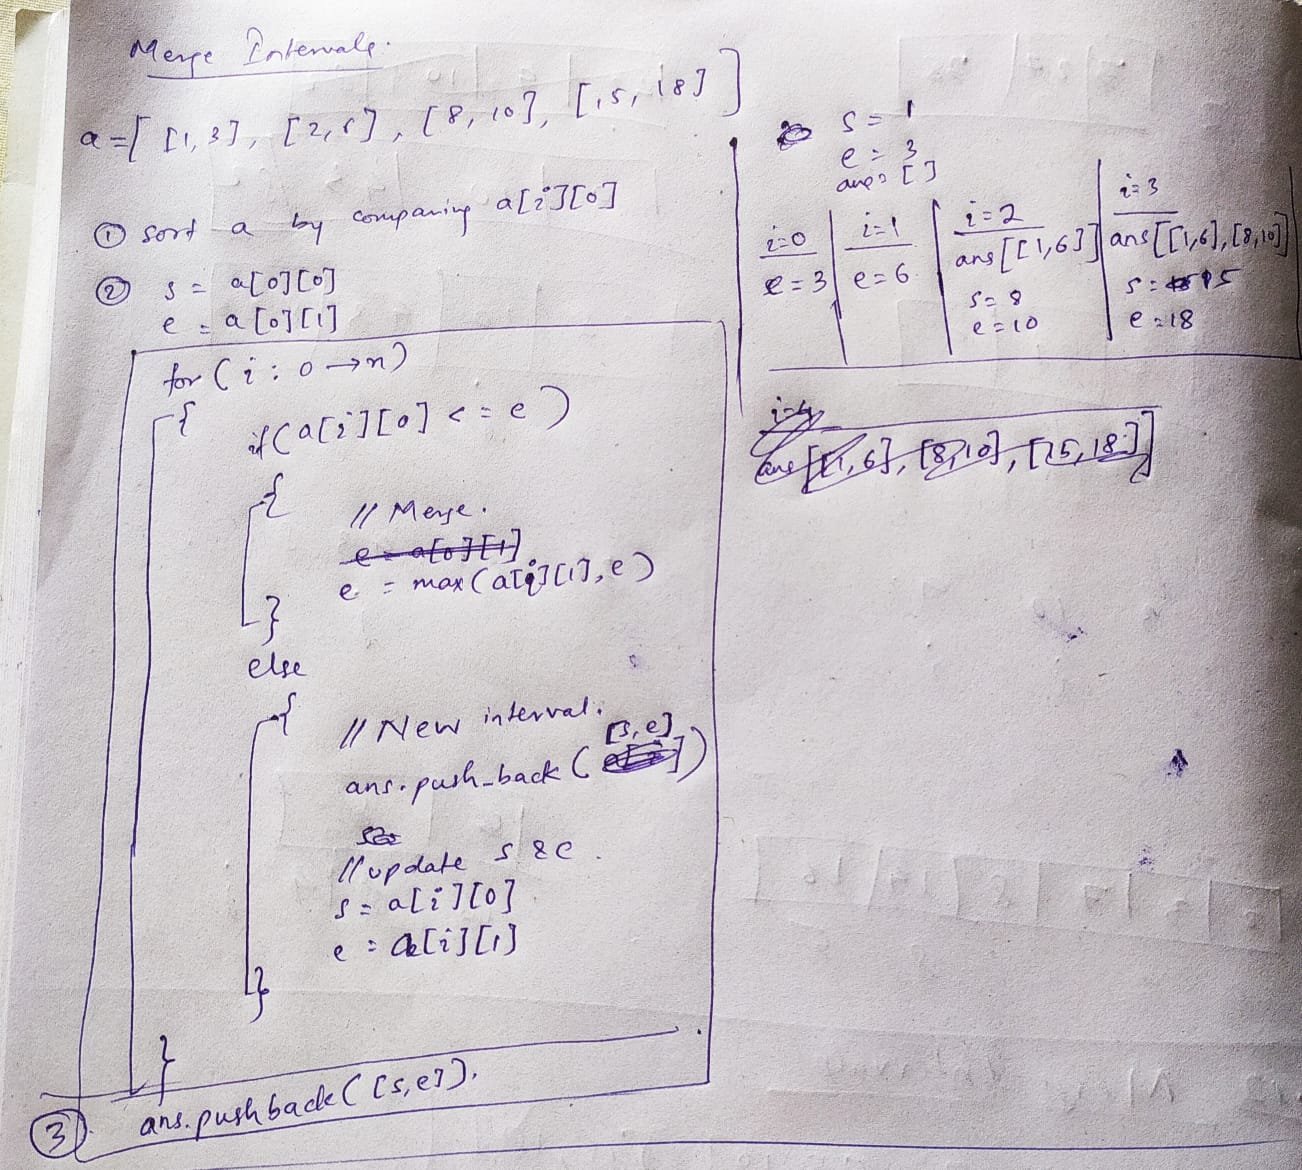 Merge Intervals.
a = [ [1, 3], [2, 6], [8, 10], [15, 18] ]
① sort a by comparing a[i][0]
② s = a[0][0]
e = a[0][1]
for (i : 0 → n)
{
if (a[i][0] <= e)
{
// Merge.
e = a[0][1]
e = max(a[i][1], e)
}
else
{
// New interval.
[s, e]
ans.push_back ( ])
// update s & e.
s = a[i][0]
e = a[i][1]
}
}
③. ans.pushback([s,e]).
s = 1
e = 3
ans = [ ]
i=0
e = 3
i=1
e = 6
i=2
ans[[1,6]]
s = 8
e = 10
i=3
ans[[1,6], [8,10]]
s = 15
e = 18
i=4
ans[[1,6], [8,10], [15,18]]